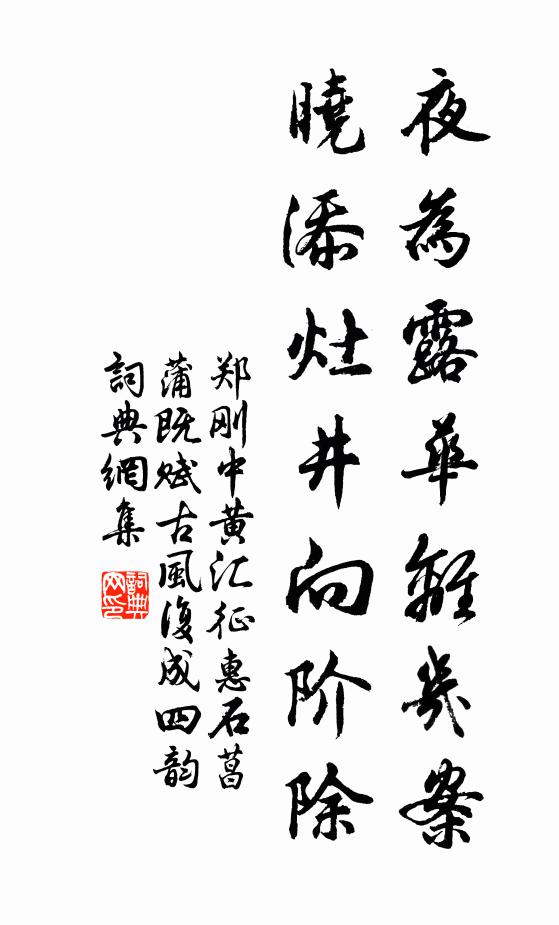 夜為露華離幾案
曉添灶井向阶除
郑刚中黄汇征惠石菖
蒲既赋古風復成四韵
詞典網集
詞典網印